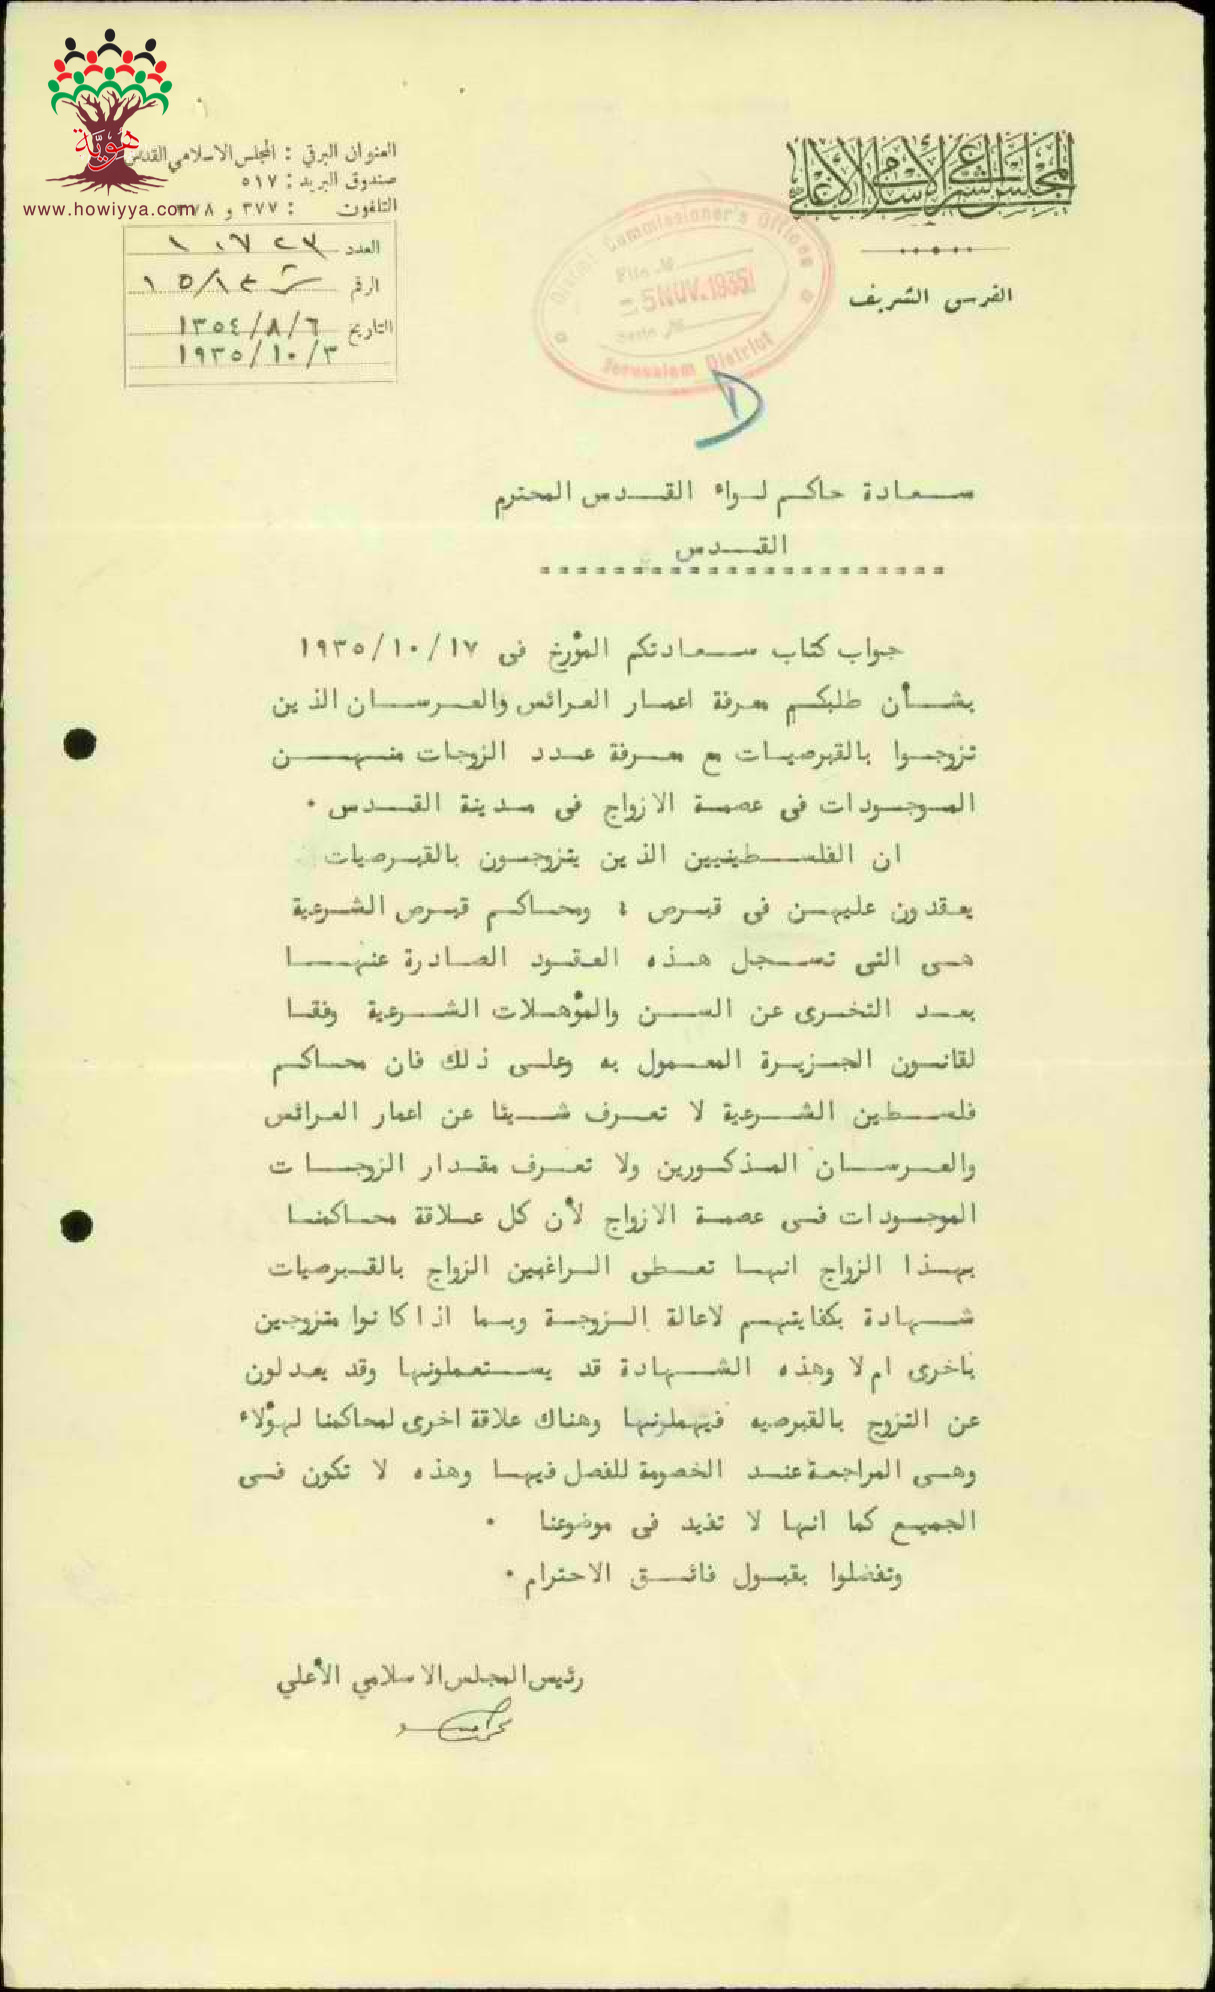 هوية
www.howiyya.com
المجلس الشرعي الإسلامي الأعلى
القدس الشريف
العنوان البرقي : المجلس الاسلامي القدس
صندوق البريد : ٥١٧
التلفون : ٣٧٧ و ٣٧٨
العدد
الرقم
التاريخ ١٣٥٤/٨/٦
١٩٣٥/١٠/٣
District Commissioner's Offices
File No
- 5 NOV. 1935
Jerusalem District
D
سعادة حاكم لواء القدس المحترم
القدس
جواب كتاب سعادتكم المؤرخ فى ١٩٣٥/١٠/١٧
بشأن طلبكم معرفة اعمار العرائس والعرسان الذين
تزوجوا بالقبرصيات مع معرفة عدد الزوجات منهن
الموجودات فى عصمة الازواج فى مدينة القدس ٠
ان الفلسطينيين الذين يتزوجون بالقبرصيات
يعقدون عليهن فى قبرص ؛ ومحاكم قبرص الشرعية
هى التى تسجل هذه العقود الصادرة عنها
بعد التخرى عن السن والمؤهلات الشرعية وفقا
لقانون الجزيرة المعمول به وعلى ذلك فان محاكم
فلسطين الشرعية لا تعرف شيئا عن اعمار العرائس
والعرسان المذكورين ولا تعرف مقدار الزوجات
الموجودات فى عصمة الازواج لأن كل علاقة محاكمنا
بهذا الزواج انها تعطى الراغبين الزواج بالقبرصيات
شهادة بكفايتهم لاعالة الزوجة وبما اذا كانوا متزوجين
باخرى ام لا وهذه الشهادة قد يستعملونها وقد يعدلون
عن التزوج بالقبرصيه فيهملونها وهناك علاقة اخرى لمحاكمنا لهؤلاء
وهى المراجعة عند الخصومة للفصل فيها وهذه لا تكون فى
الجميع كما انها لا تفيد فى موضوعنا ٠
وتفضلوا بقبول فائق الاحترام ٠
رئيس المجلس الاسلامي الأعلي